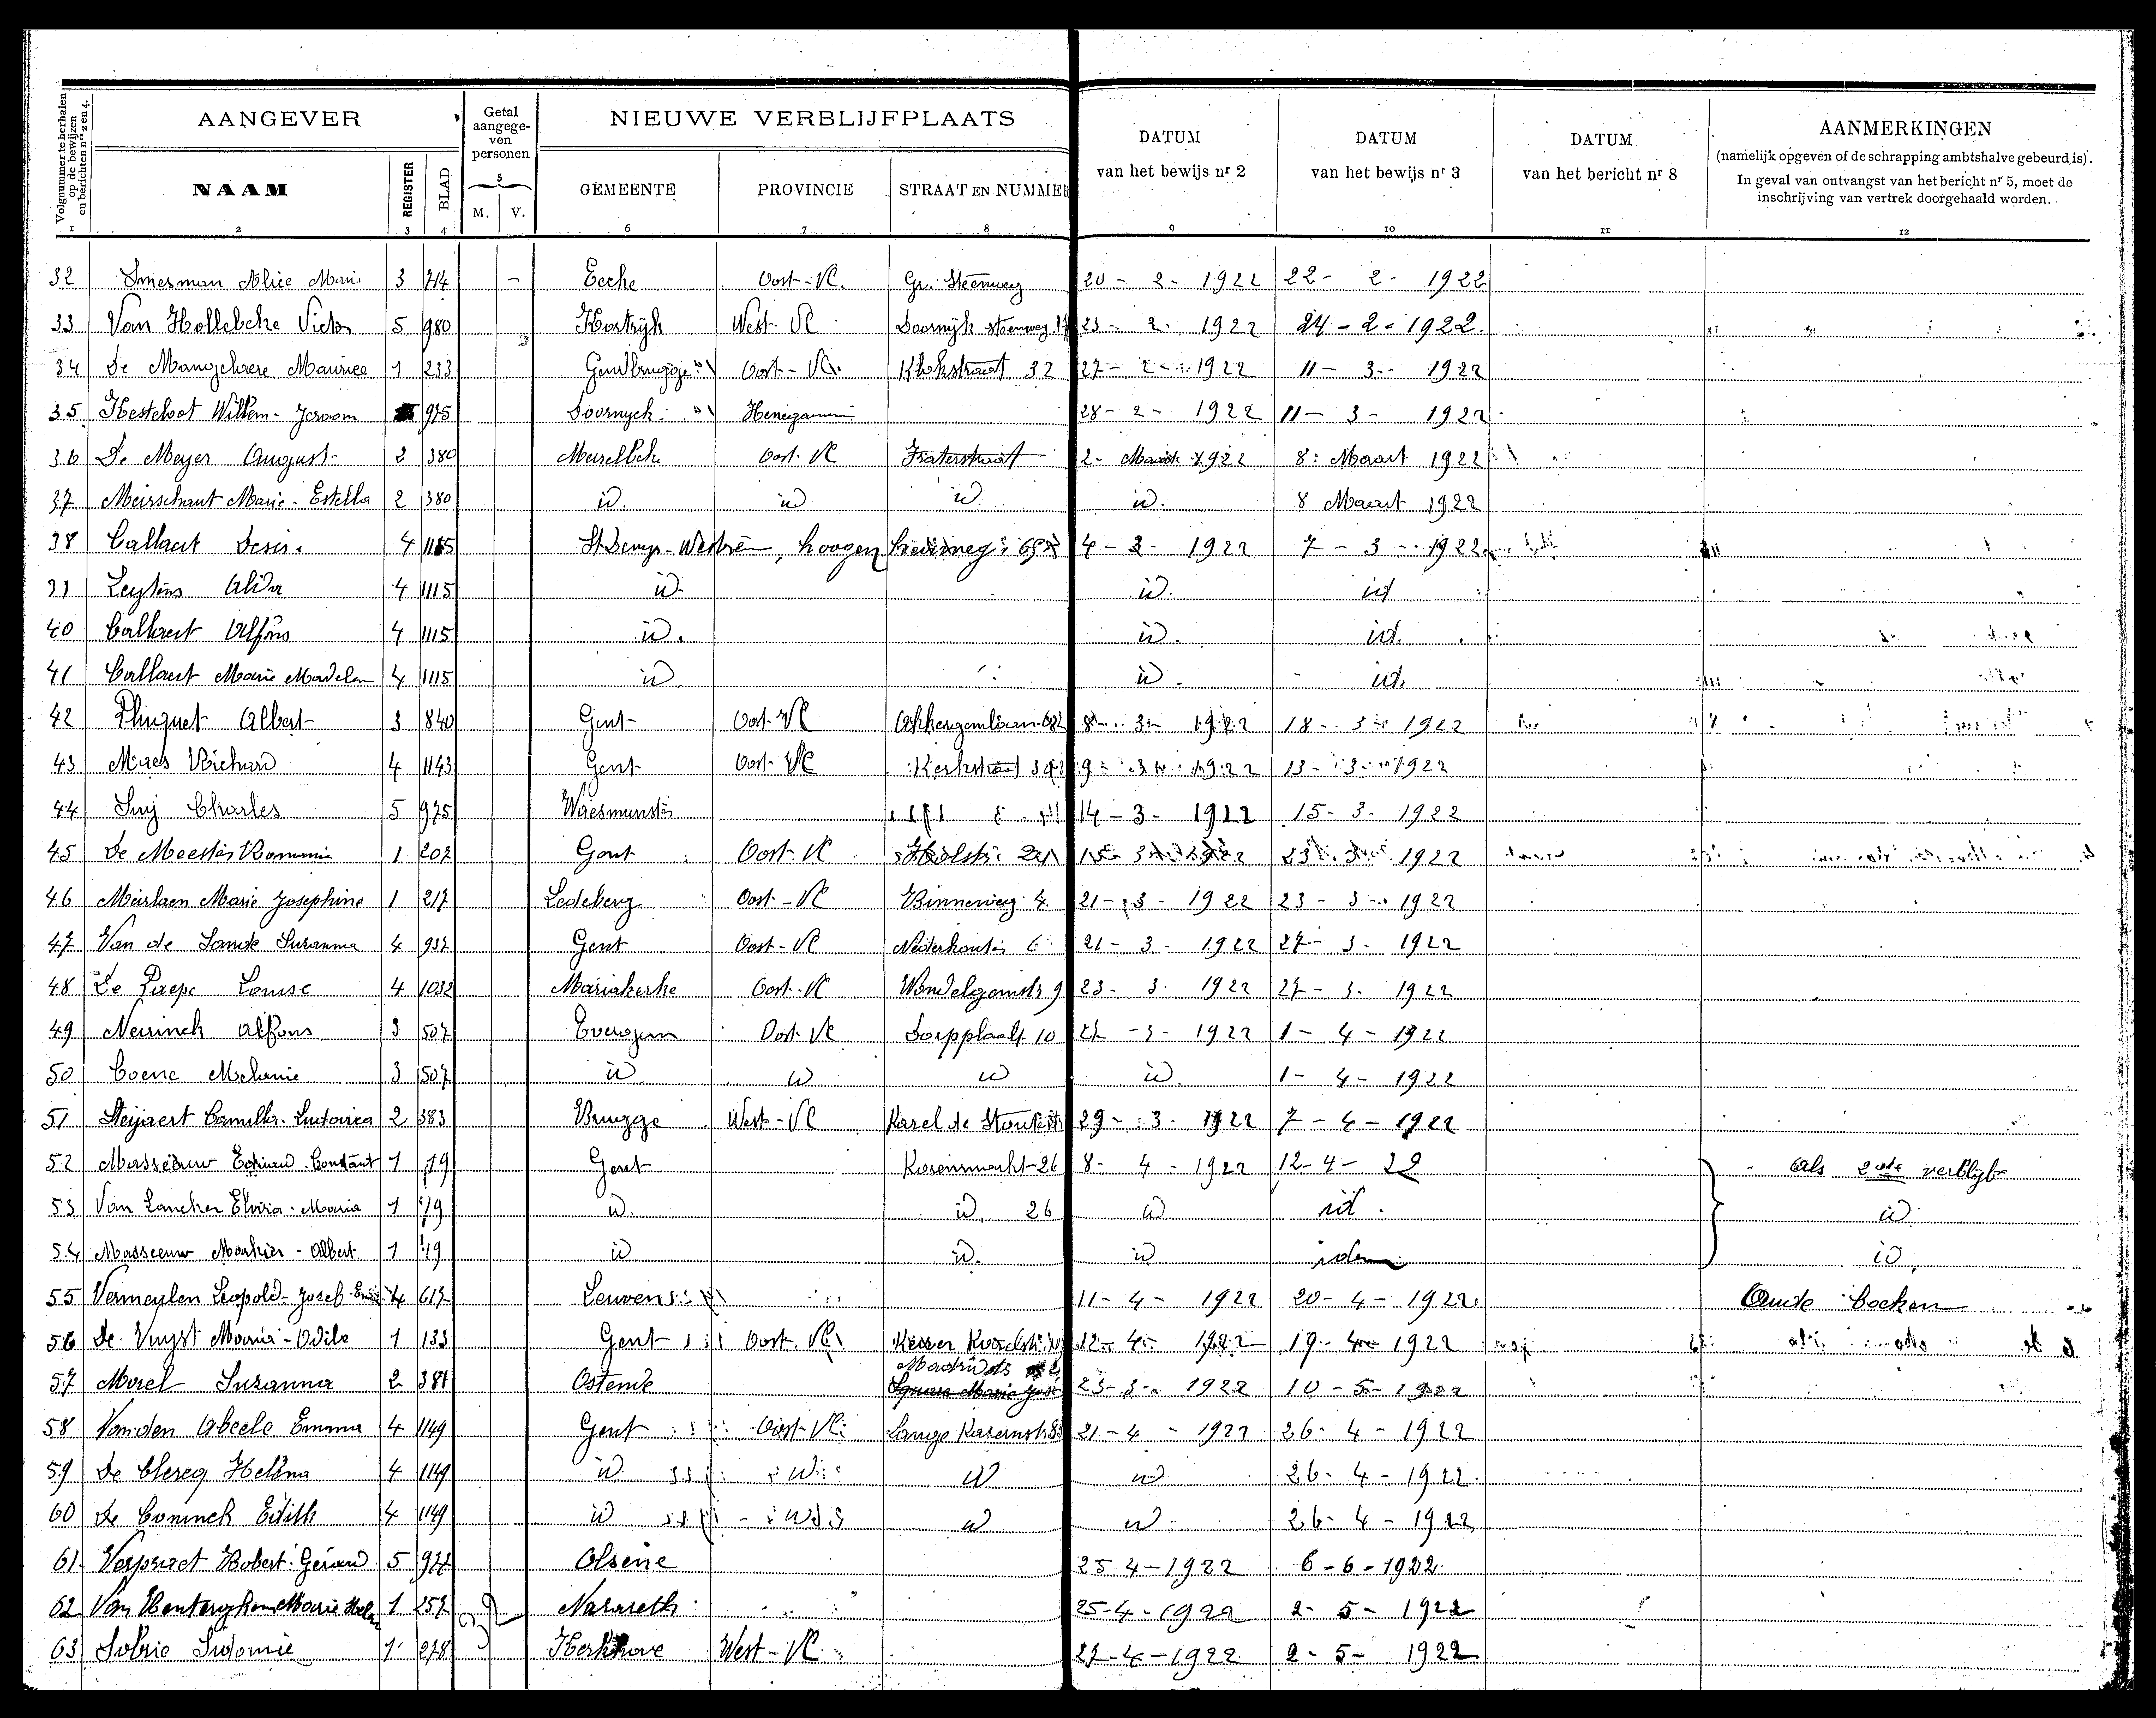 Volgnummer te herhalen op de bewijzen en berichten nrs 2 en 4.
AANGEVER
Getal aangege-ven personen
NIEUWE VERBLIJFPLAATS
DATUM van het bewijs nr 2
DATUM van het bewijs nr 3
DATUM van het bericht nr 8
AANMERKINGEN
(namelijk opgeven of de schrapping ambtshalve gebeurd is).
In geval van ontvangst van het bericht nr 5, moet de inschrijving van vertrek doorgehaald worden.
NAAM REGISTER BLAD M. V. GEMEENTE PROVINCIE STRAAT EN NUMMER
1 2 3 4 5 6 7 8 9 10 11 12
32 Smesman Alice Marie 3 714 - Eecke Oost-Vl. Gr. Steenweg 20-2-1922 22-2-1922
33 Van Hollebeke Victor 5 980 Kortrijk West-Vl Doornijk steenweg 23-2-1922 24-2-1922
34 De Mangelaere Maurice 1 233 Gendbrugge Oost-Vl. Klokstraat 32 27-2-1922 11-3-1922
35 Kesteloot Willem-Jeroom 975 Doornyck Henegauwen 28-2-1922 11-3-1922
36 De Meyer August 2 380 Merelbeke Oost-Vl Fraterstraat 2-Maart 1922 8 Maart 1922
37 Meirschaut Marie-Estella 2 380 id. id id. id. 8 Maart 1922
38 Callaert Desir. 4 1115 St Denys-Westrem, hoogen heirweg 4-3-1922 7-3-1922
39 Leytens Alida 4 1115 id. id. id
40 Callaert Alfons 4 1115 id. id. id.
41 Callaert Marie Madelen 4 1115 id. id. id.
42 Pluquet Albert 3 840 Gent Oost-Vl Akkergemlaan 8-3-1922 18-3-1922
43 Maes Richard 4 1143 Gent Oost-Vl Kerkstraat 9-3-1922 13-3-1922
44 Suij Charles 5 975 Waesmunster 14-3-1922 15-3-1922
45 De Meester Romanie 1 207 Gent Oost-Vl 1922 23-3-1922
46 Meirlaen Marie Josephine 1 217 Ledeberg Oost-Vl Binnenweg 4 21-3-1922 23-3-1922
47 Van de Sande Suzanna 4 937 Gent Oost-Vl 21-3-1922 27-3-1922
48 De Paepe Louise 4 1032 Mariakerke Oost-Vl Wondelgemstr 9 23-3-1922 27-3-1922
49 Neirinck Alfons 3 507 Evergem Oost-Vl Dorpplaats 10 27-3-1922 1-4-1922
50 Coene Melanie 3 507 id. id id id. 1-4-1922
51 Steijaert Camilla-Ludovica 2 383 Brugge West-Vl Karel de Stoutestr 29-3-1922 7-4-1922
52 Masseeuw Eduard-Constant 1 19 Gent Korenmarkt 26 8-4-1922 12-4-22 als 2de verblijf
53 Van Lancker Elvira-Maria 1 19 id. id. 26 id id. id
54 Masseeuw -Albert 1 19 id id. id idem id.
55 Vermeylen Leopold-Jozef 4 617 Leuven 11-4-1922 20-4-1922 Oude boeken
56 De Vuyst Maria-Odile 1 133 Gent Oost-Vl Keizer Karelstr. 12-4-1922 19-4-1922
57 Morel Suzanna 2 381 Ostende Madridstr Square Marie José 23-3-1922 10-5-1922
58 Van den Abeele Emma 4 1149 Gent Oost-Vl. Lange Kazernstr 21-4-1922 26-4-1922
59 De Clercq Helena 4 1149 id id id id 26-4-1922
60 De Coninck Edith 4 1149 id id id id 26-4-1922
61 Verpraet Robert-Gérard 5 922 Olsene 25-4-1922 6-6-1922
62 Van Henterghem Marie Helen 1 257 Nazareth 25-4-1922 2-5-1922
63 Sobrie Sidonie 1 278 Kerkhove West-Vl 27-4-1922 2-5-1922
32